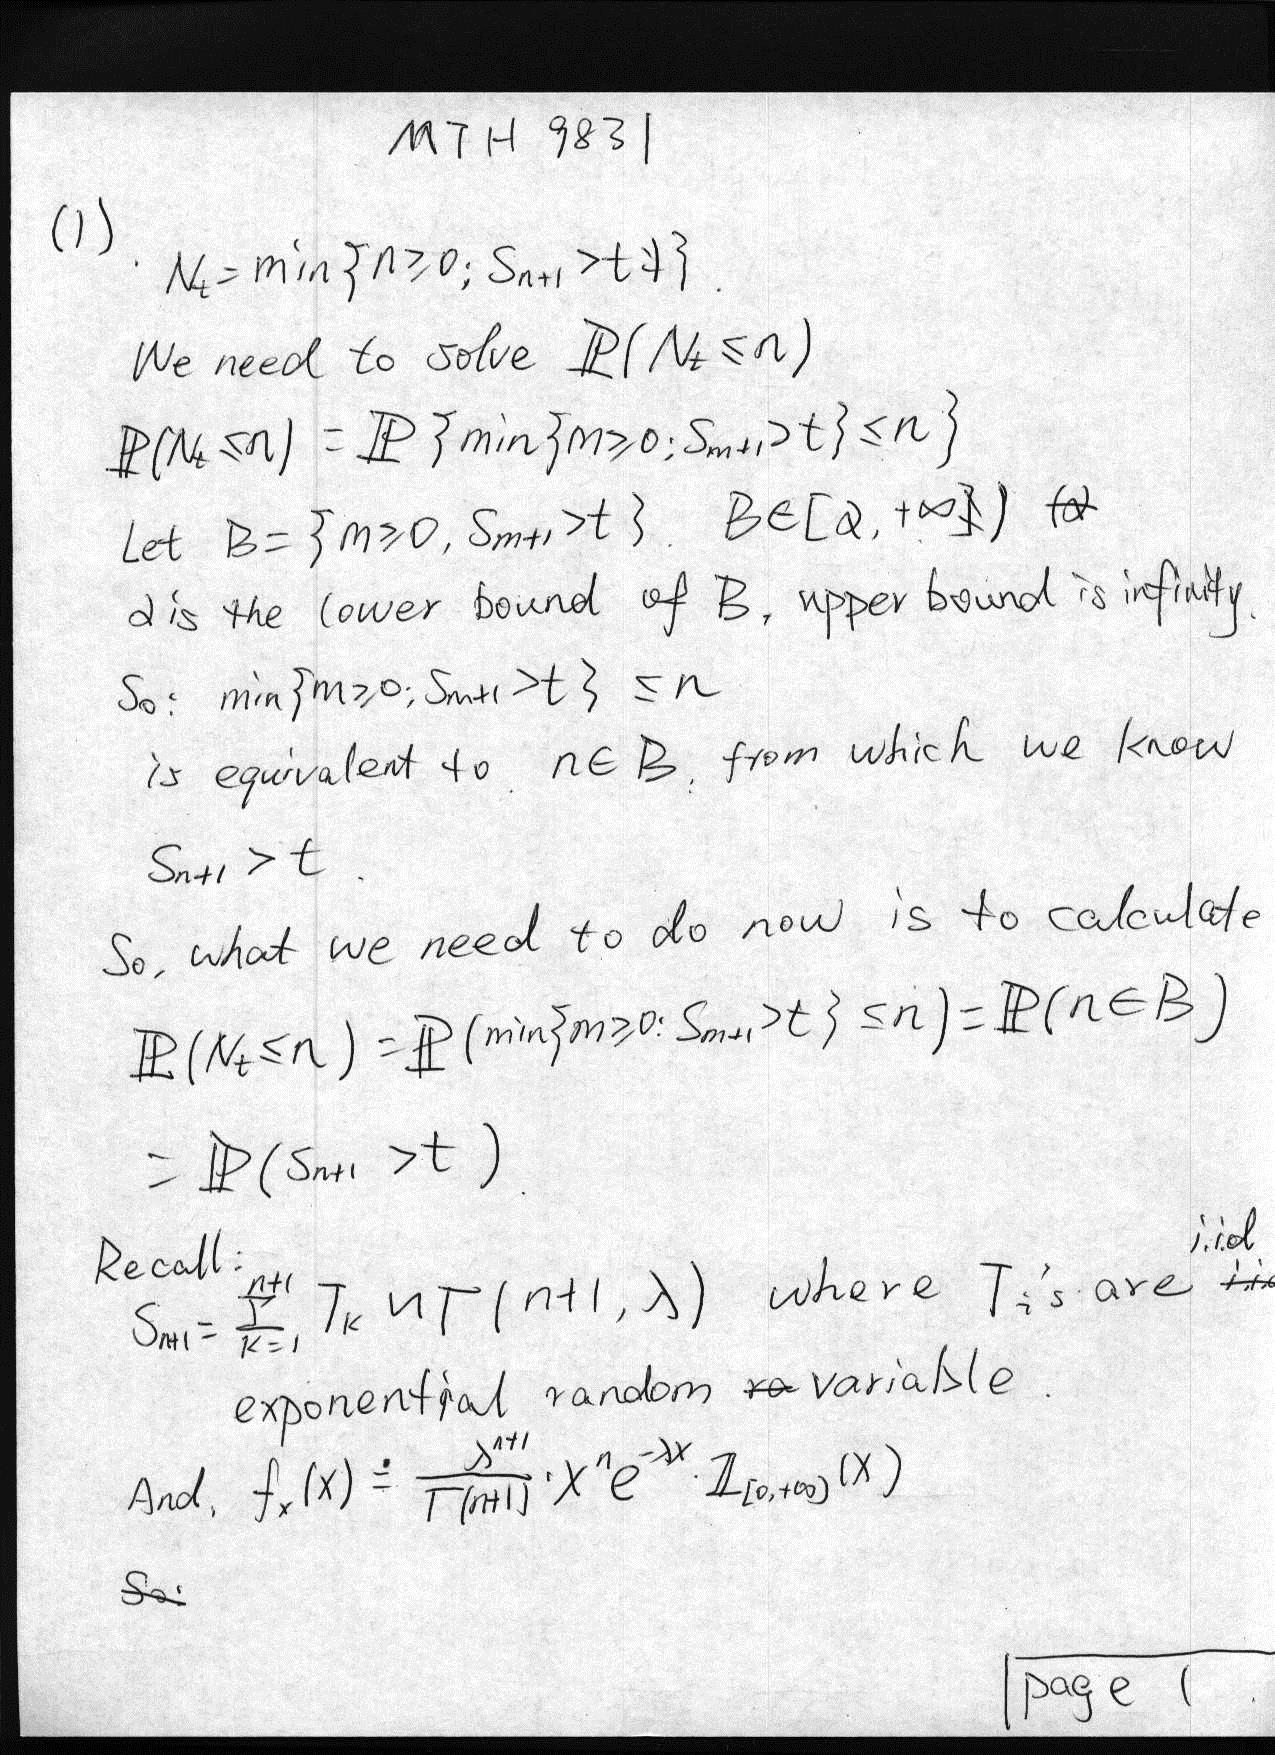 MTH 9831
(1). N_t = min{n≥0; S_{n+1} > t}.
We need to solve ℙ(N_t ≤ n)
ℙ(N_t ≤ n) = ℙ{min{m≥0; S_{m+1} > t} ≤ n}
Let B = {m≥0, S_{m+1} > t}. B∈[α, +∞)
α is the lower bound of B, upper bound is infinity.
So: min{m≥0; S_{m+1} > t} ≤ n
is equivalent to n∈B, from which we know
S_{n+1} > t.
So, what we need to do now is to calculate
ℙ(N_t ≤ n) = ℙ(min{m≥0: S_{m+1} > t} ≤ n) = ℙ(n∈B)
= ℙ(S_{n+1} > t).
Recall:
S_{n+1} = Σ_{k=1}^{n+1} T_k ∼ Γ(n+1, λ) where T_i's are i.i.d
exponential random variable.
And, f_x(x) = λ^{n+1}/Γ(n+1) · x^n e^{-λx} · 𝟙_{[0,+∞)}(x)
So:
page 1